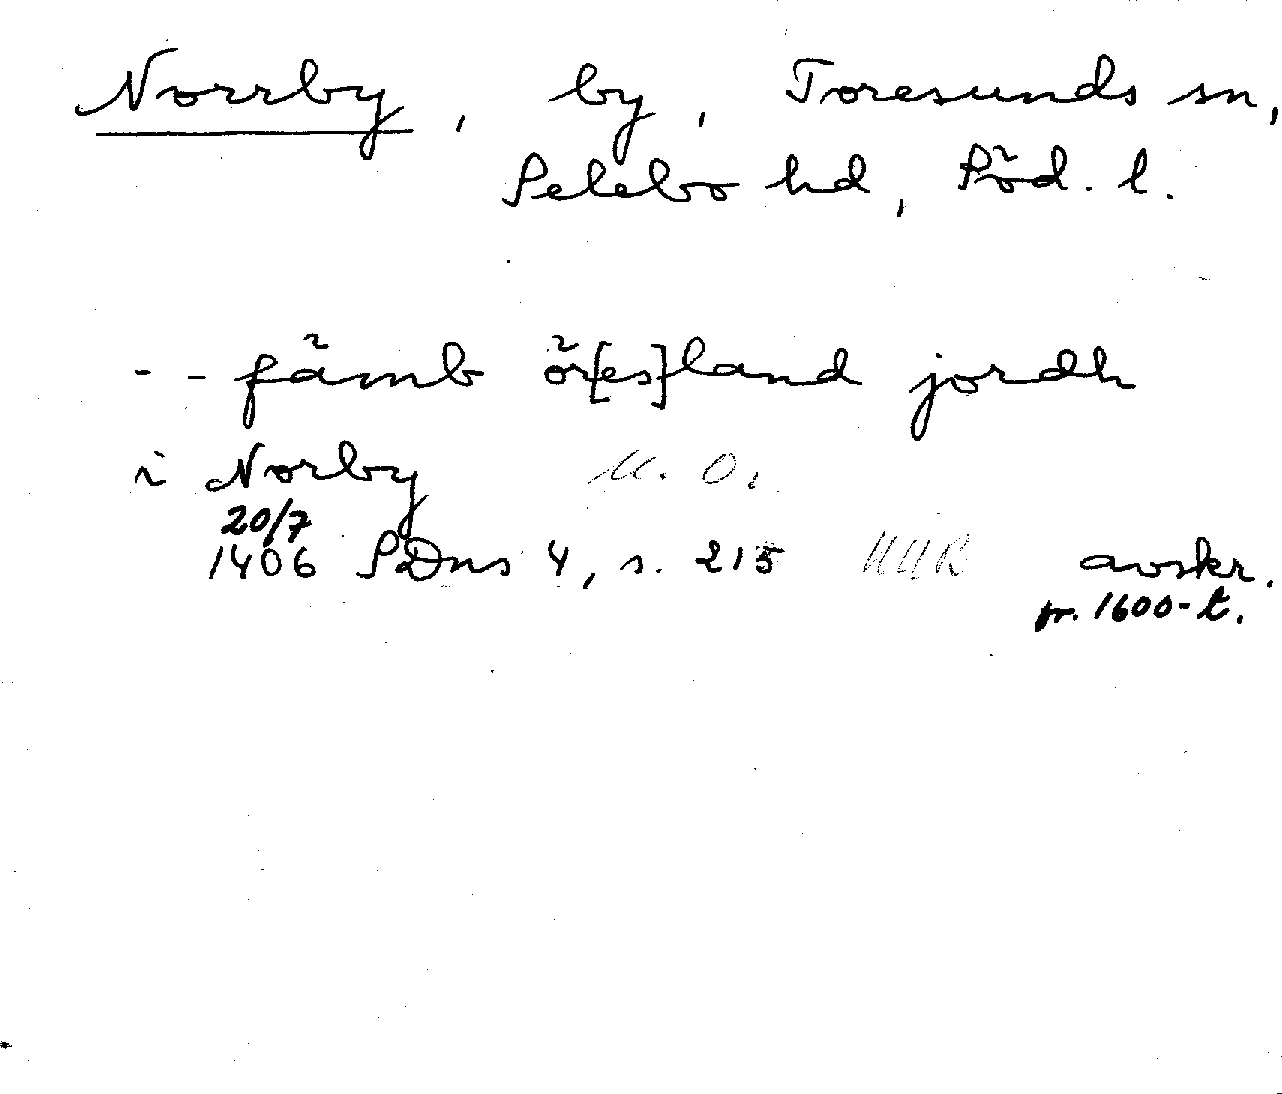 Norrby, by, Toresunds sn,
Selebo hd, Söd. l.
- - fämb ör[es]land jordh
i Norby U. O.
20/7
1406 SDns 4, s. 215 avskr.
fr. 1600-t.